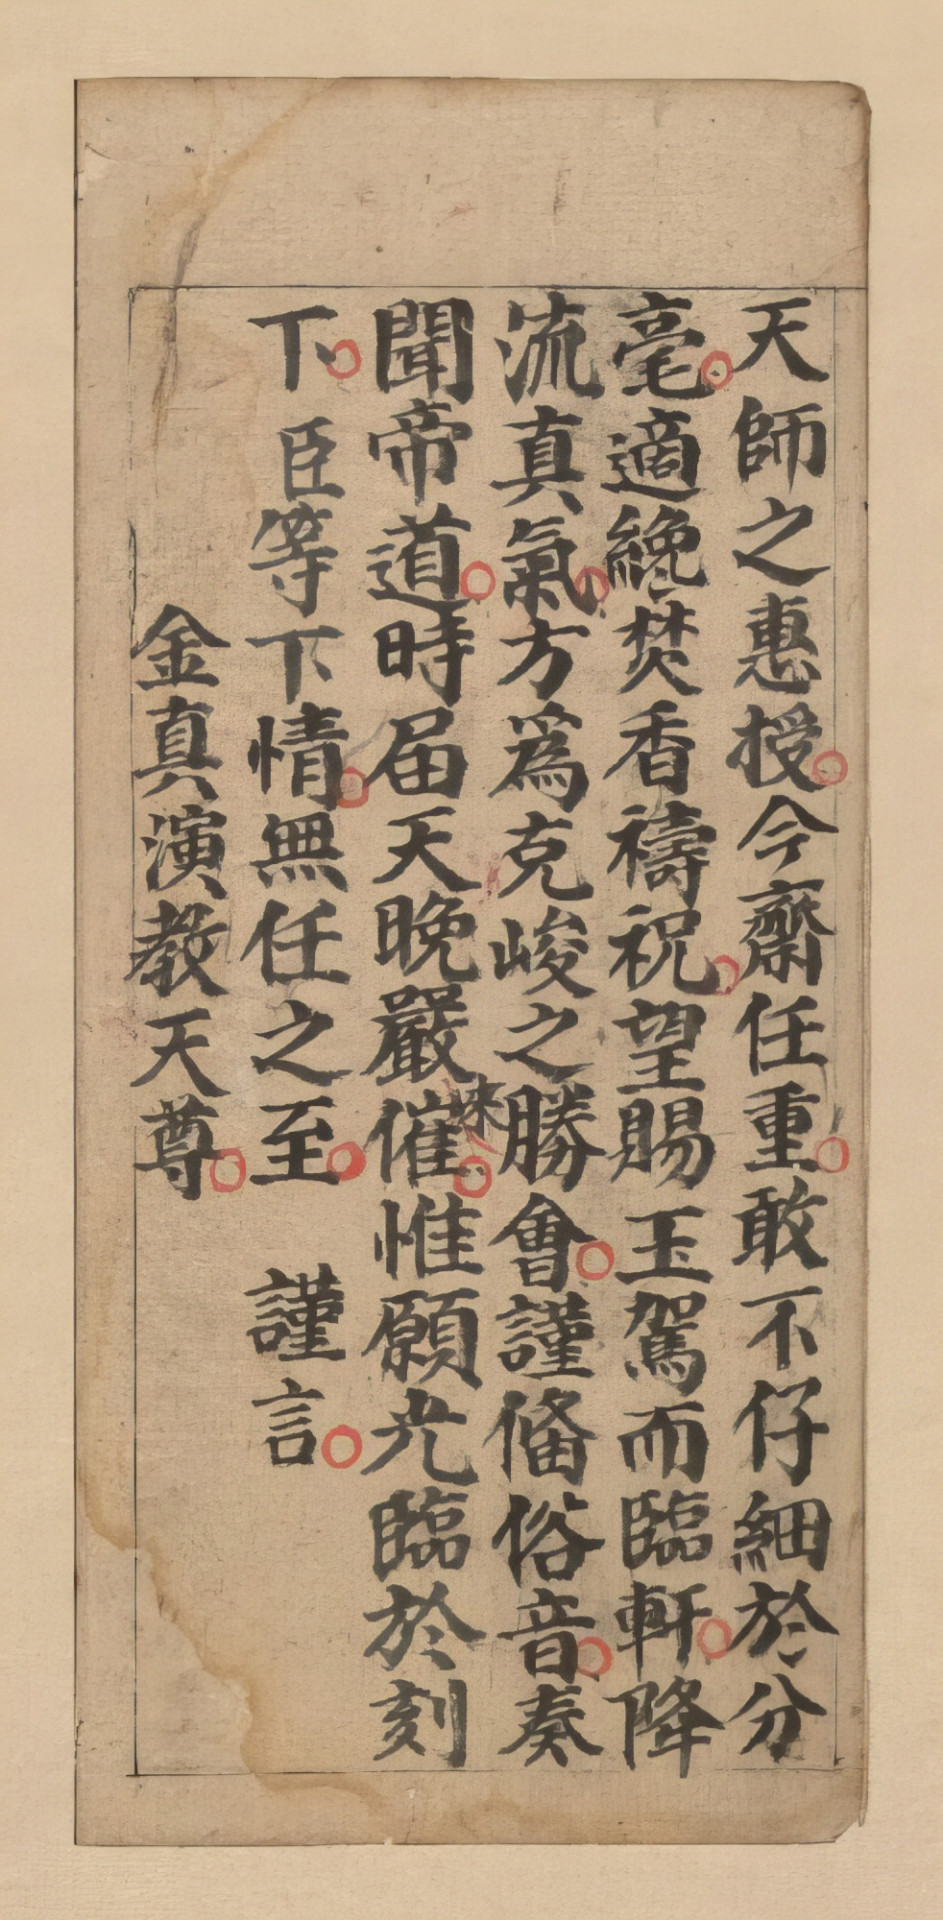 天師之惠授今齋任重敢不仔細於分
毫適纔焚香禱祝望賜玉駕而臨軒降
流真氣方為克峻之勝會謹俻俗音奏
聞帝道時届天晚嚴催来惟願光臨於刻
下臣等下情無任之至 謹言
金真演教天尊